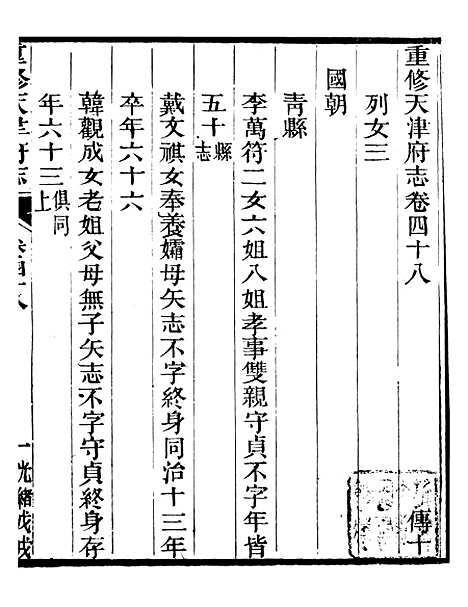 重修天津府志卷四十八
傳十
列女三
國朝
青縣
李萬符二女六姐八姐孝事雙親守貞不字年皆
五十縣志
戴文祺女奉養孀母矢志不字終身同治十三年
卒年六十六
韓觀成女老姐父母無子矢志不字守貞終身存
年六十三俱同上
重修天津府志
卷四十八
一
光緒戊戌